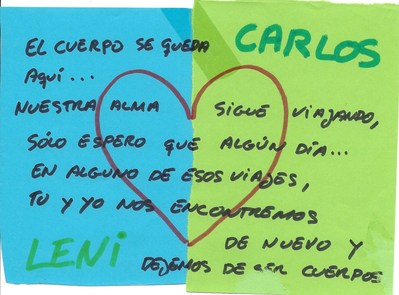 EL CUERPO SE QUEDA
CARLOS
AQUÍ...
NUESTRA ALMA SIGUE VIAJANDO,
SÓLO ESPERO QUE ALGÚN DÍA...
EN ALGUNO DE ESOS VIAJES,
TU Y YO NOS ENCONTREMOS
DE NUEVO Y
LENI
DEJEMOS DE SER CUERPOS